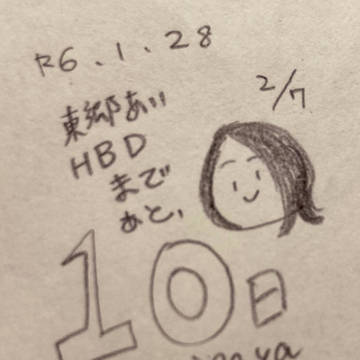 R6.1.28
2/7
東郷あい
HBD
まで
あと、
10日